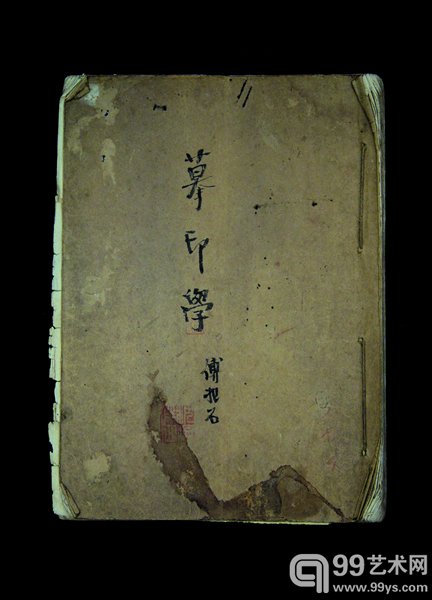 摹印學
傅抱石
99艺术网
www.99ys.com